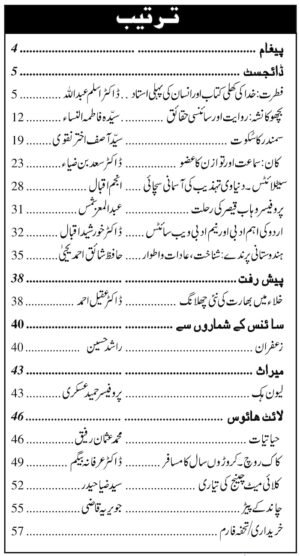 ترتیب
پیغام ........ 4
ڈائجسٹ ........ 5
فطرت: خدا کی کھلی کتاب اور انسان کی پہلی استاد ... ڈاکٹر اسلم عبداللہ ........ 5
بچھو کا نشہ: روایت اور سائنسی حقائق ........ سیّدہ فاطمۃ النساء ........ 12
سمندر کا سکوت ........ سیّد آصف اختر نقوی ........ 19
کان: سماعت اور توازن کا عضو ........ ڈاکٹر سعد بن ضیاء ........ 23
سیٹلائٹس۔ دنیاوی تہذیب کی آسمانی سچائی ........ انجم اقبال ........ 28
پروفیسر وہاب قیصر کی رحلت ........ عبدالمعز شمس ........ 31
اردو کی اہم ادبی اور نیم ادبی ویب سائٹس ........ ڈاکٹر خورشید اقبال ........ 32
ہندوستانی پرندے: شناخت، عادات و اطوار ........ حافظ شائق احمد یحییٰ ........ 35
پیش رفت ........ 38
خلاء میں بھارت کی نئی چھلانگ ........ ڈاکٹر عقیل احمد ........ 38
سائنس کے شماروں سے ........ 40
زعفران ........ راشد حسین ........ 40
میراث ........ 43
لیون ہک ........ پروفیسر حمید عسکری ........ 43
لائٹ ھاؤس ........ 46
حیاتیات ........ محمد عثمان رفیق ........ 46
کاک روچ۔ کروڑوں سال کا مسافر ........ ڈاکٹر عرفانہ بیگم ........ 49
کلائی میٹ چینج کی تیاری ........ سید ضیا حیدر ........ 52
چاند کے پیڑ ........ جویریہ قاضی ........ 55
خریداری/تحفہ فارم ........ 57